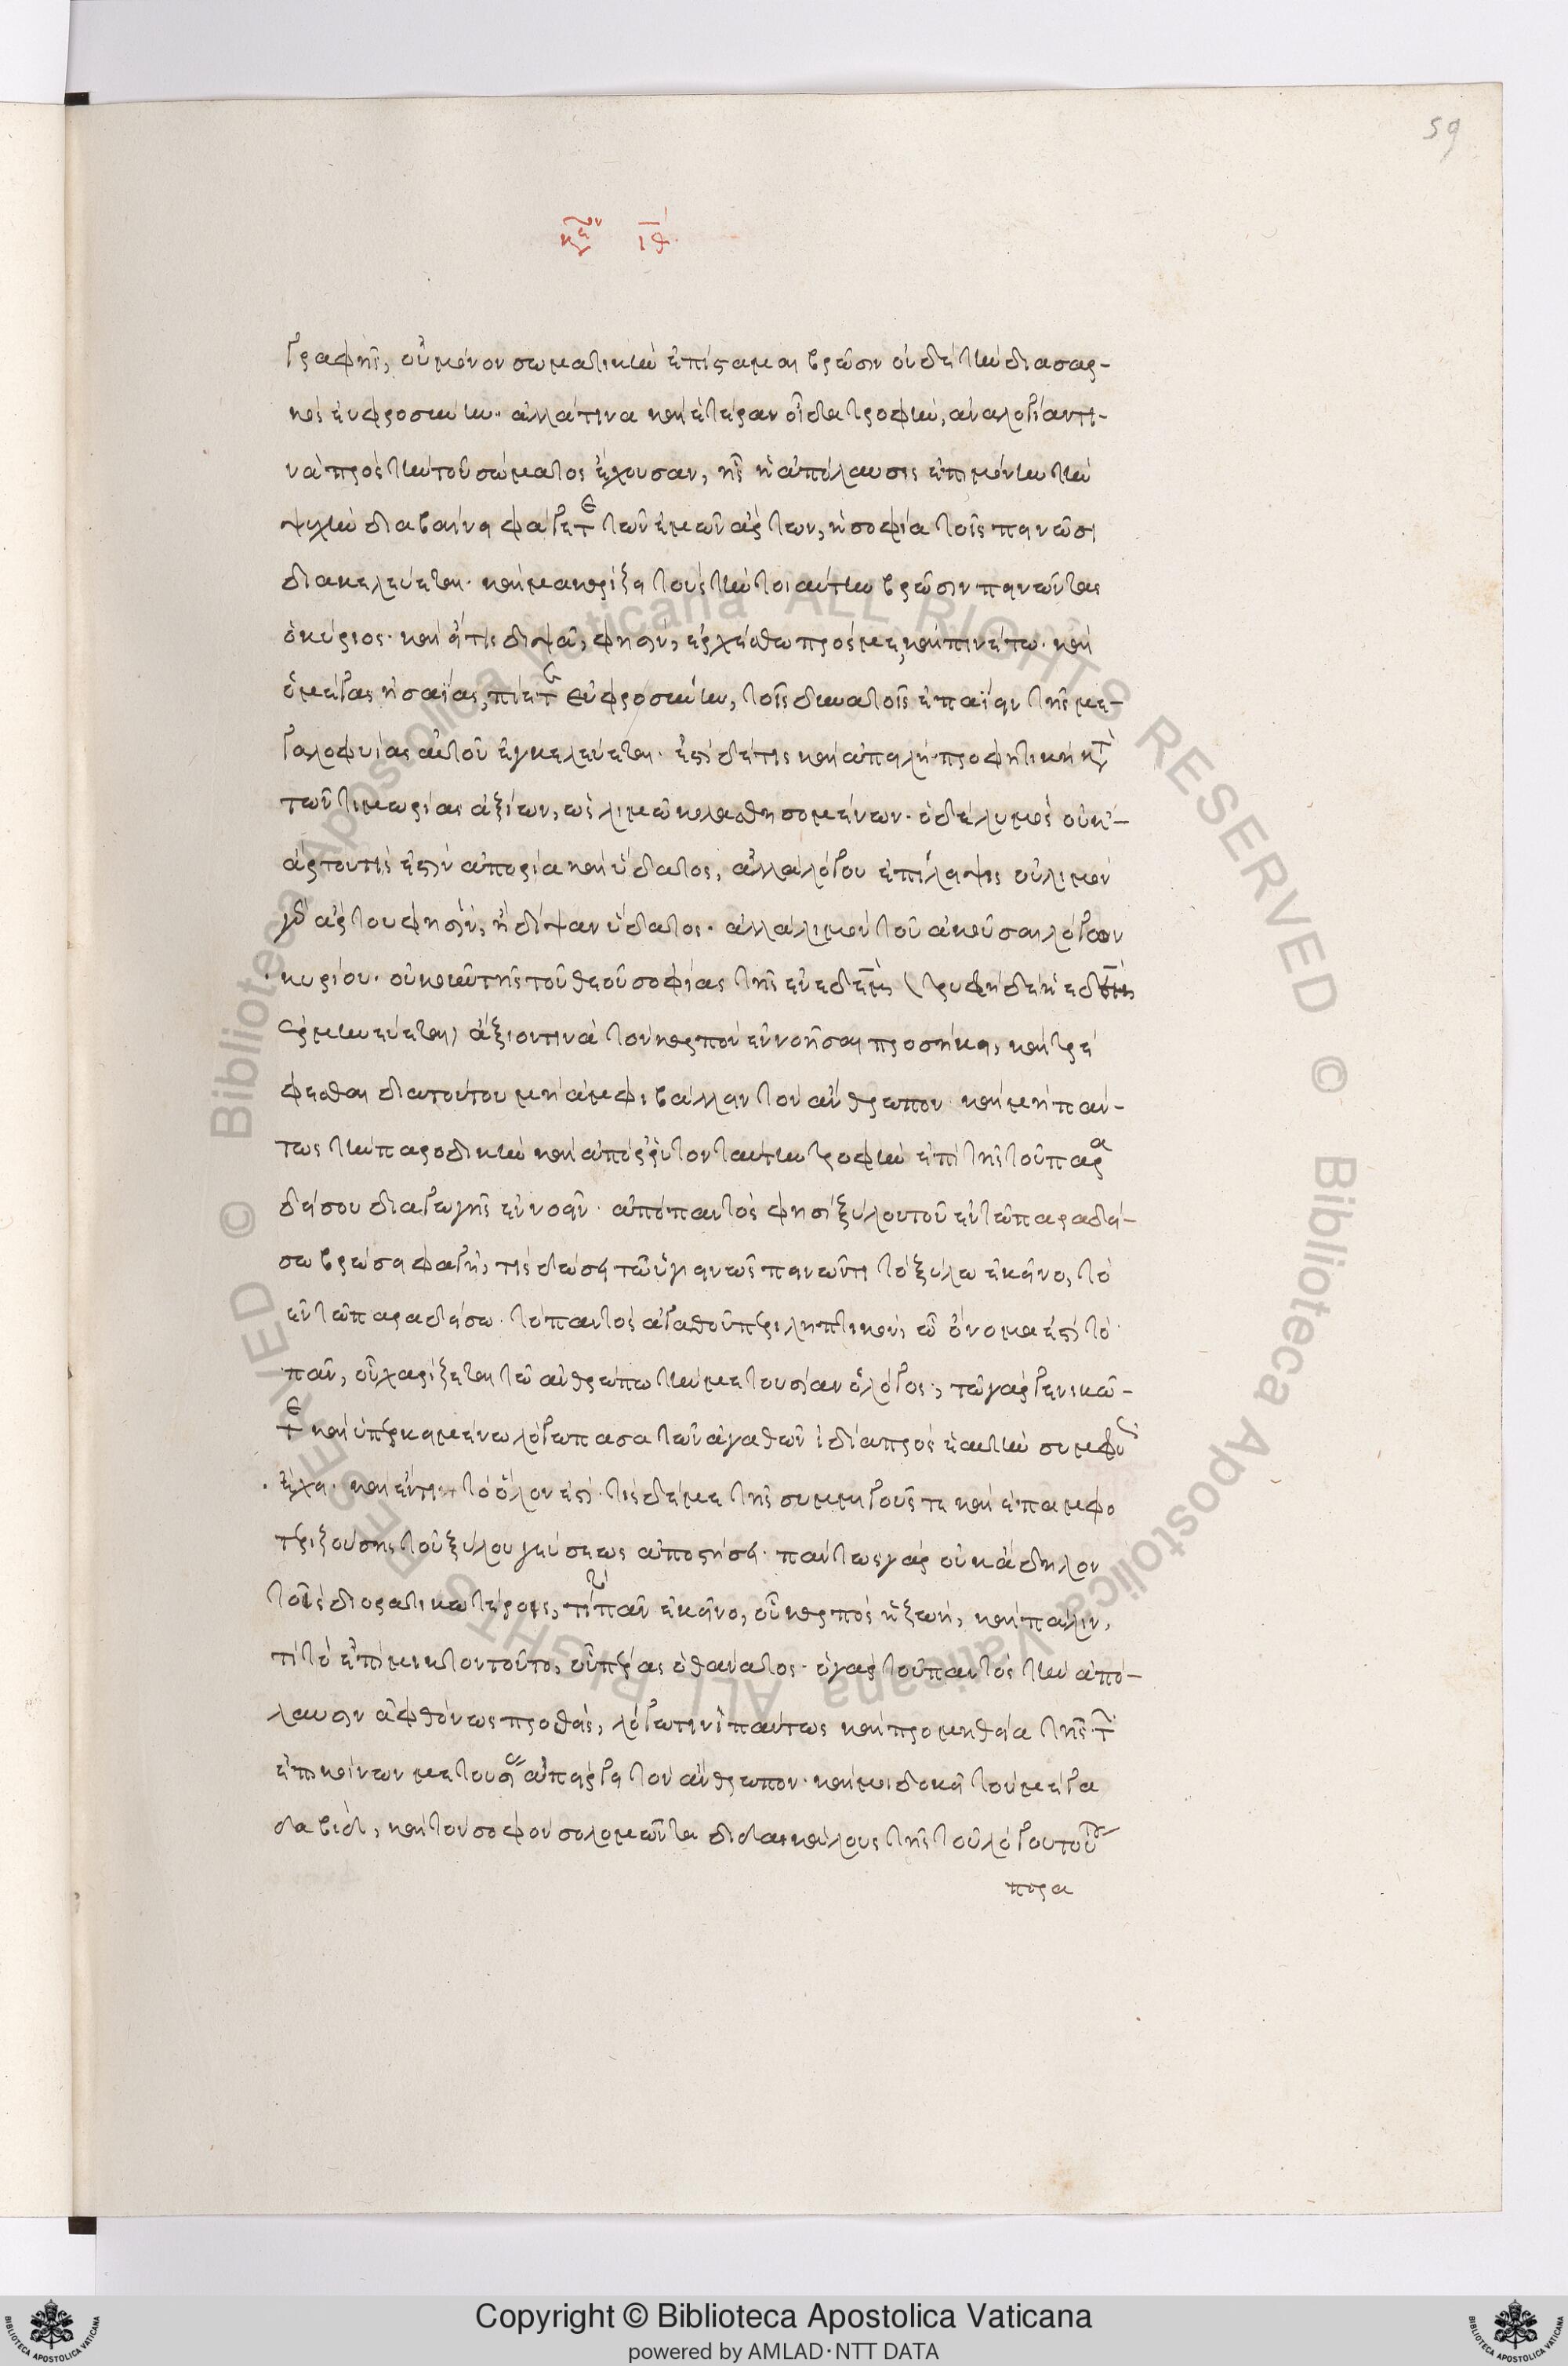 59
κεφ ιθ
γραφῆς, οὐ μόνον σωματικὴν ἐπίσταμαι βρῶσιν οὐδὲ τὴν διὰ σαρ-
κὸς εὐφροσύνην. ἀλλά τινα καὶ ἑτέραν οἶδα τροφὴν, ἀναλογίαν τι-
νὰ πρὸς τὴν τοῦ σώματος ἔχουσαν, ἧς ἡ ἀπόλαυσις ἐπὶ μόνην τὴν
ψυχὴν διαβαίνει φάγετε τῶν ἐμῶν ἄρτων, ἡ σοφία τοῖς πεινῶσι
διακελεύεται. καὶ μακαρίζει τοὺς τὴν τοιαύτην βρῶσιν πεινῶντας
ὁ κύριος. καὶ εἴ τις διψᾷ, φησὶν, ἐρχέσθω πρός με, καὶ πινέτω. καὶ
ὁ μέγας ἠσαΐας, πίετε εὐφροσύνην, τοῖς δυνατοῖς ἐπαΐειν τῆς με-
γαλοφυίας αὐτοῦ ἐγκελεύεται. ἔστι δέ τις καὶ ἀπειλὴ προφητικὴ κατὰ
τῶν τιμωρίας ἀξίων, ὡς λιμῷ κολασθησομένων. ὁ δὲ λυμὸς οὐκ
ἄρτου τίς ἐστιν ἀπορία καὶ ὕδατος, ἀλλὰ λόγου ἐπίλειψις οὐ λιμὸν
γὰρ ἄρτου φησὶν, ἢ δίψαν ὕδατος. ἀλλὰ λιμὸν τοῦ ἀκοῦσαι λόγον
κυρίου. οὐκοῦν τῆς τοῦ θεοῦ σοφίας τῆς ἐν ἐδὲμ (τρυφὴ δὲ ἡ ἐδὲμ
ἑρμηνεύεται) ἄξιόν τινα τὸν καρπὸν ἐννοῆσαι προσήκει, καὶ τρέ
φεσθαι διὰ τούτου μὴ ἀμφιβάλλειν τὸν ἄνθρωπον καὶ μὴ πάν-
τως τὴν παροδικὴν καὶ ἀπόρρυτον ταύτην τροφὴν ἐπὶ τῆς τοῦ παρα
δείσου διαγωγῆς ἐννοεῖν. ἀπὸ παντὸς φησὶ ξύλου τοῦ ἐν τῷ παραδεί-
σω βρώσει φαγῆ, τίς δώσει τῷ ὑγιεινῶς πεινῶντι τὸ ξύλω ἐκεῖνο, τὸ
ἐν τῷ παραδείσω. τὸ παντὸς ἀγαθοῦ περιληπτικὸν, ᾧ ὄνομα ἐστὶ τὸ
πᾶν, οὗ χαρίζεται τῷ ἀνθρώπω τὴν μετουσίαν ὁ λόγος, τῷ γὰρ γενικῷ-
τε καὶ ὑπερκειμένω λόγω πᾶσα τῶν ἀγαθῶν ἰδέα πρὸς ἑαυτὴν συμφυῶς
ἔχει. καὶ ἕν τι τὸ ὅλον ἐστί. τίς δέ με τῆς συμμιγοῦς τε καὶ ἐπαμφο
τεριζούσης τοῦ ξύλου γεύσεως ἀποστήσει. πάντως γὰρ οὐκ ἄδηλον
τοῖς διορατικωτέροις, τί τὸ πᾶν ἐκεῖνο, οὗ καρπὸς ἡ ζωὴ, καὶ πάλιν,
τί τὸ ἐπίμικτον τοῦτο, οὗ πέρας ὁ θάνατος. ὁ γὰρ τοῦ παντὸς τὴν ἀπό-
λαυσιν ἀφθόνως προθεὶς, λόγω τινὶ πάντως καὶ προμηθεία τῆς τῶν
ἐπικοίνων μετουσίας ἀπείργει τὸν ἄνθρωπον. καὶ μοι δοκεῖ τὸν μέγα
δαβὶδ, καὶ τὸν σοφὸν σολομῶντα διδασκάλους τῆς τοῦ λόγου τούτου
παρα
Copyright © Biblioteca Apostolica Vaticana
powered by AMLAD·NTT DATA